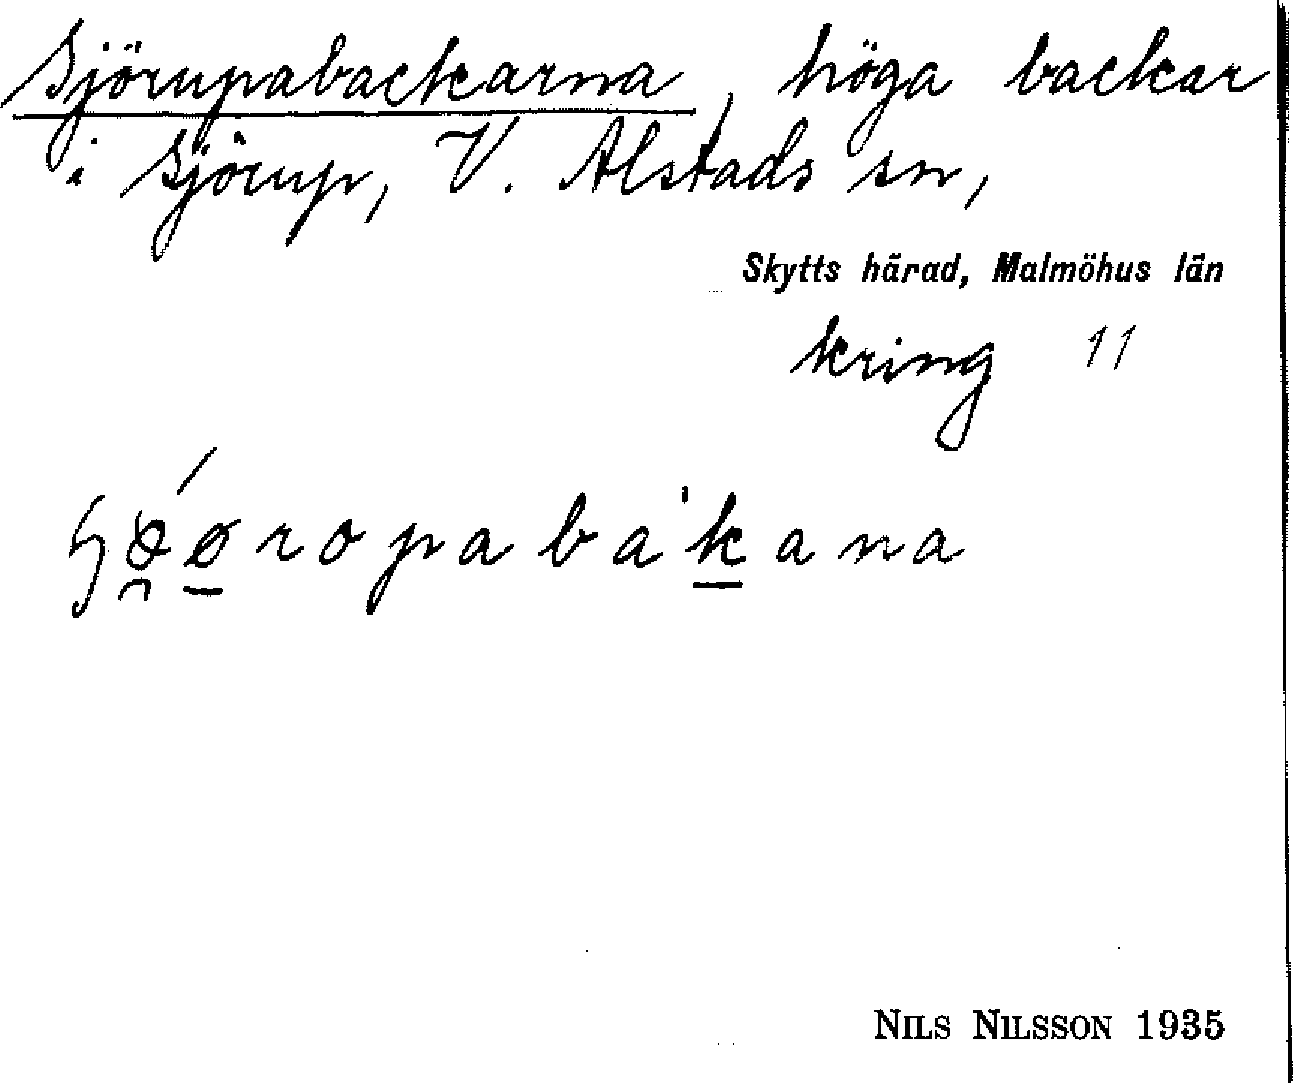 Sjörupabackarna, höga backar
i Sjörup, V. Alstads sn,
Skytts härad, Malmöhus län
kring 11
NILS NILSSON 1935